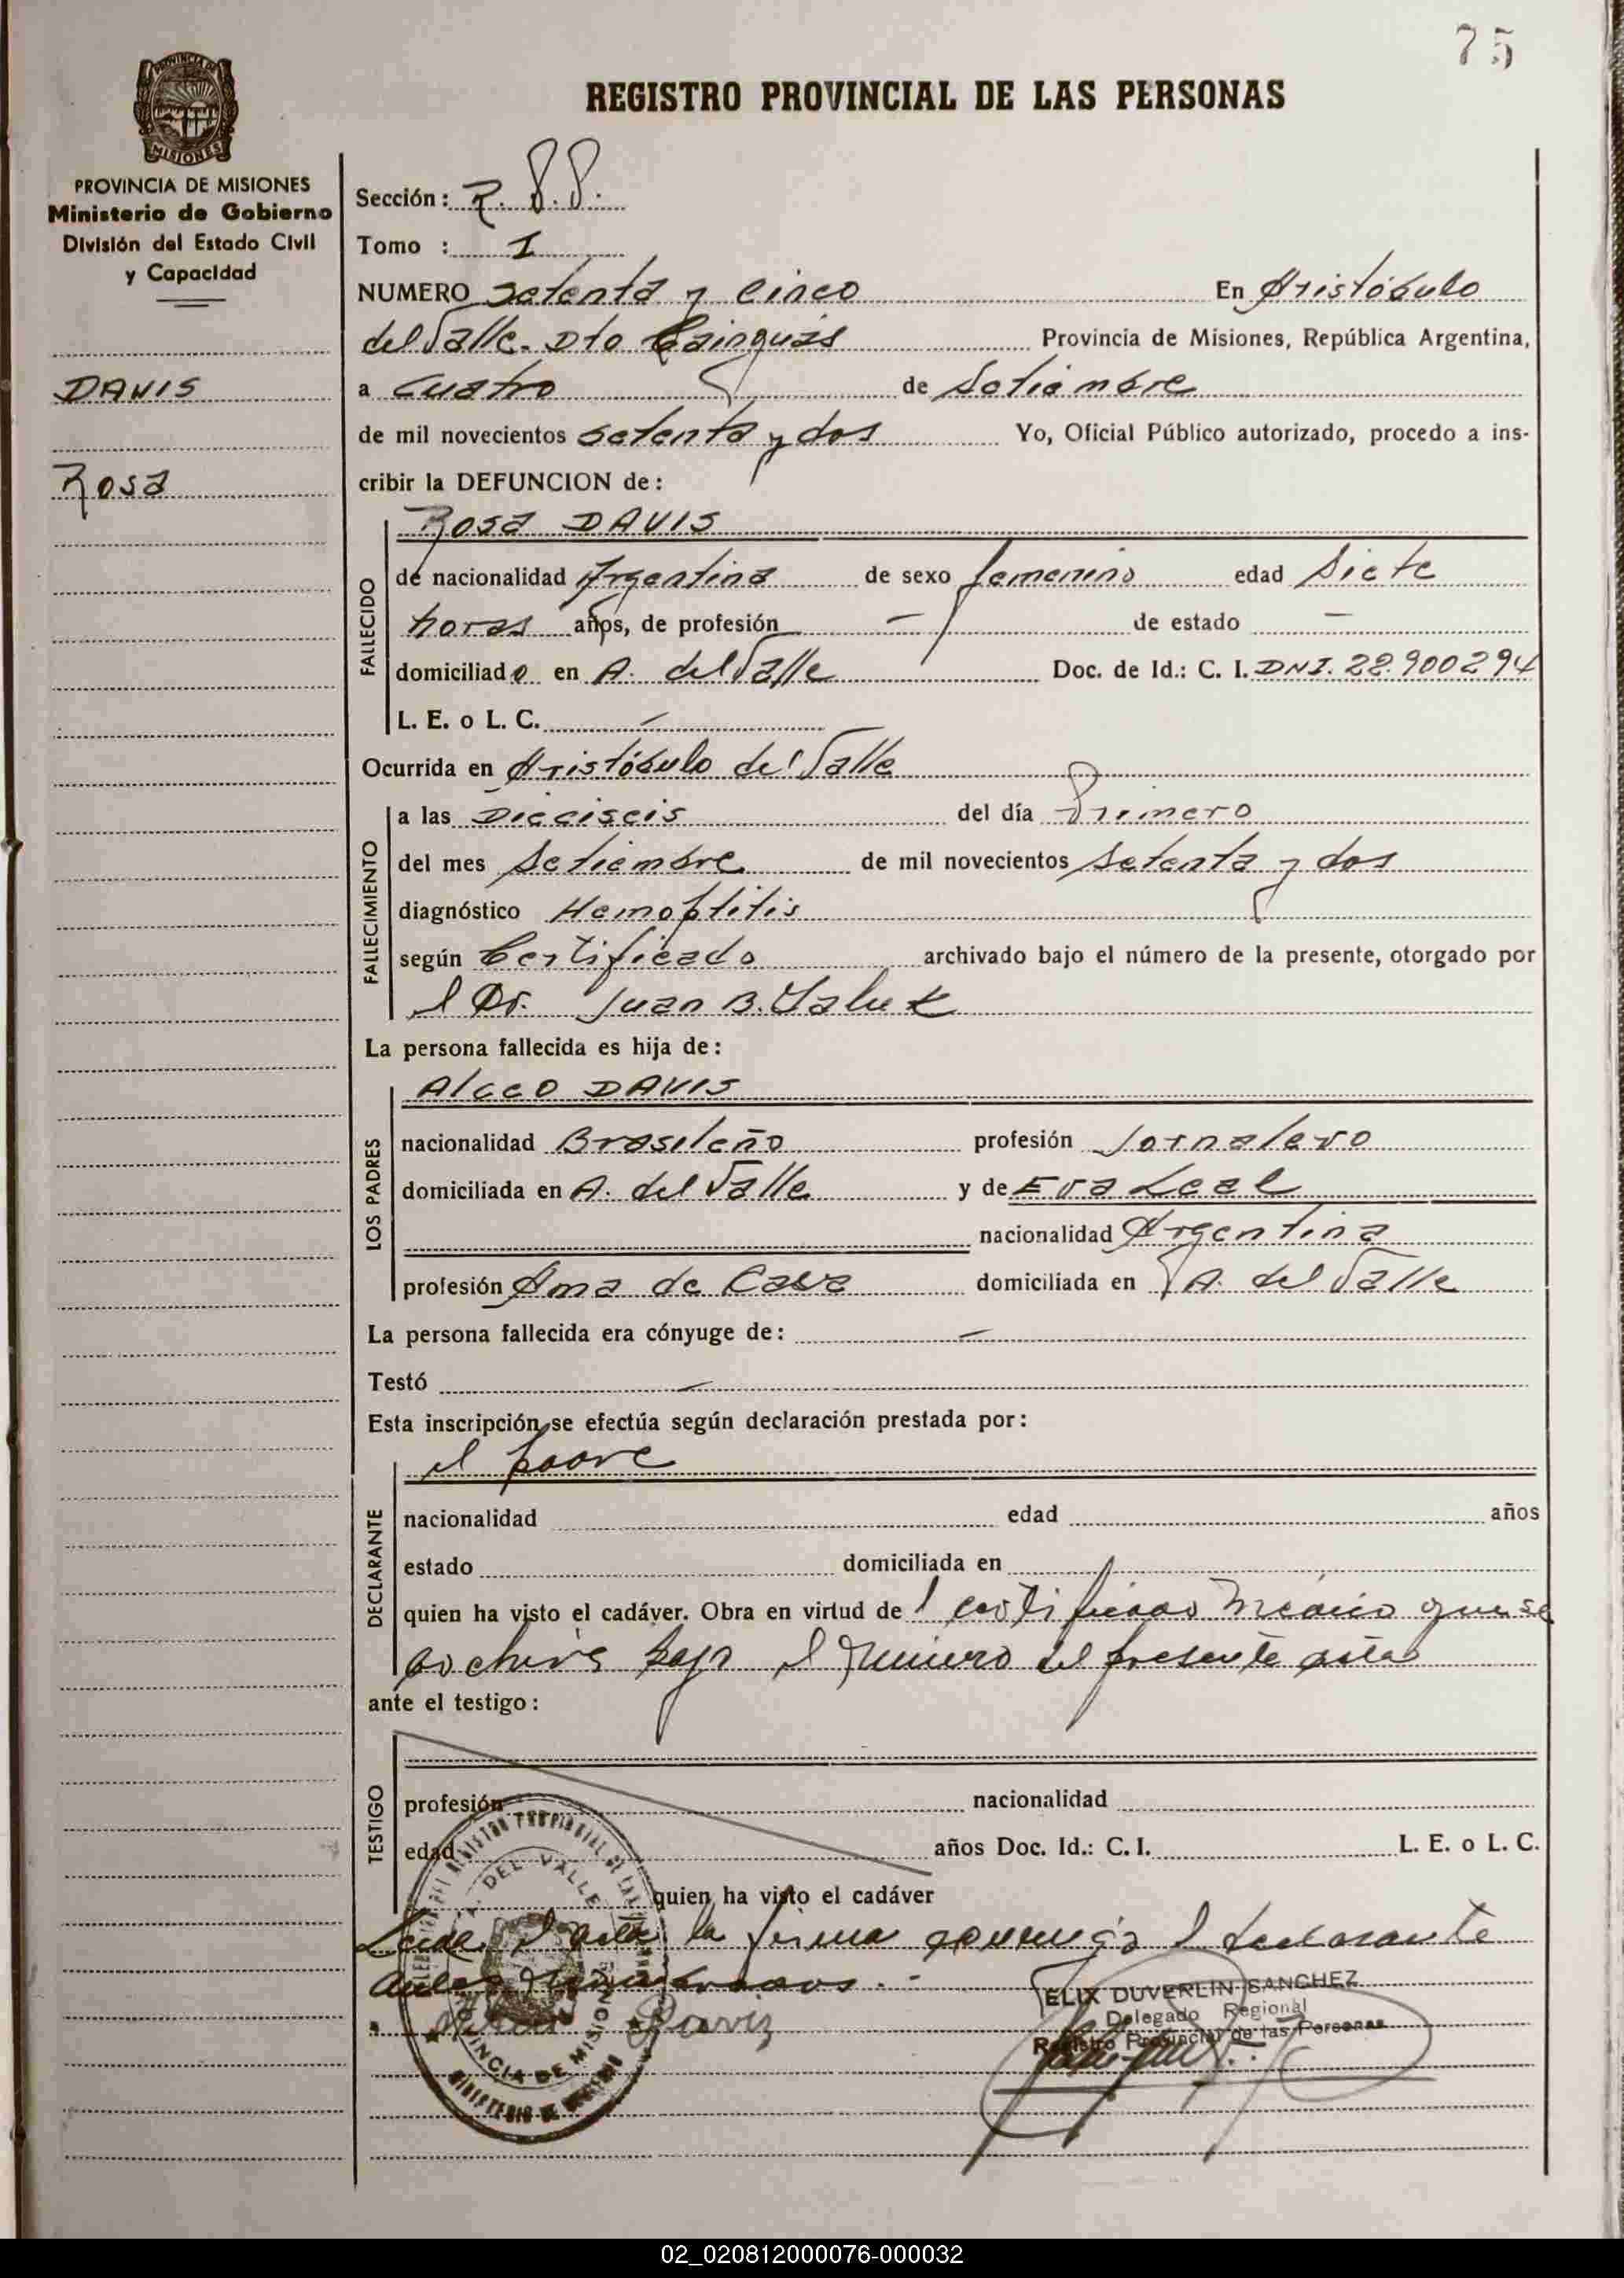 75
REGISTRO PROVINCIAL DE LAS PERSONAS
PROVINCIA DE MISIONES
Ministerio de Gobierno
División del Estado Civil
y Capacidad
DAVIS
Rosa
Sección:
Tomo : I
NUMERO Setenta y cinco En Aristóbulo
del Valle. Dto Cainguás Provincia de Misiones, República Argentina,
a cuatro de Setiembre
de mil novecientos setenta y dos Yo, Oficial Público autorizado, procedo a ins-
cribir la DEFUNCION de:
Rosa DAVIS
FALLECIDO
de nacionalidad Argentina de sexo femenino edad Siete
horas años, de profesión — de estado —
domiciliado en A. del Valle Doc. de Id.: C. I. DNI. 22.900294
L. E. o L. C. —
Ocurrida en Aristóbulo del Valle
FALLECIMIENTO
a las Dieciseis del día Primero
del mes Setiembre de mil novecientos Setenta y dos
diagnóstico Hemoptitis
según Certificado archivado bajo el número de la presente, otorgado por
el Dr. Juan B.
La persona fallecida es hija de:
LOS PADRES
Alceo DAVIS
nacionalidad Brasileño profesión Jornalero
domiciliada en A. del Valle y de Eva Leal
nacionalidad Argentina
profesión Ama de Casa domiciliada en A. del Valle
La persona fallecida era cónyuge de: —
Testó —
Esta inscripción se efectúa según declaración prestada por:
DECLARANTE
el padre
nacionalidad edad años
estado domiciliada en
quien ha visto el cadáver. Obra en virtud del certificado médico que se
archiva bajo el número del presente acta
ante el testigo:
TESTIGO
profesión nacionalidad
edad años Doc. Id.: C. I. L. E. o L. C.
quien ha visto el cadáver
Leida el acta la firma conmigo el declarante
antes
FELIX DUVERLIN SANCHEZ
Delegado Regional
Registro Provincial de las Personas
A. DEL VALLE
PROVINCIA DE MISIONES
02_020812000076-000032